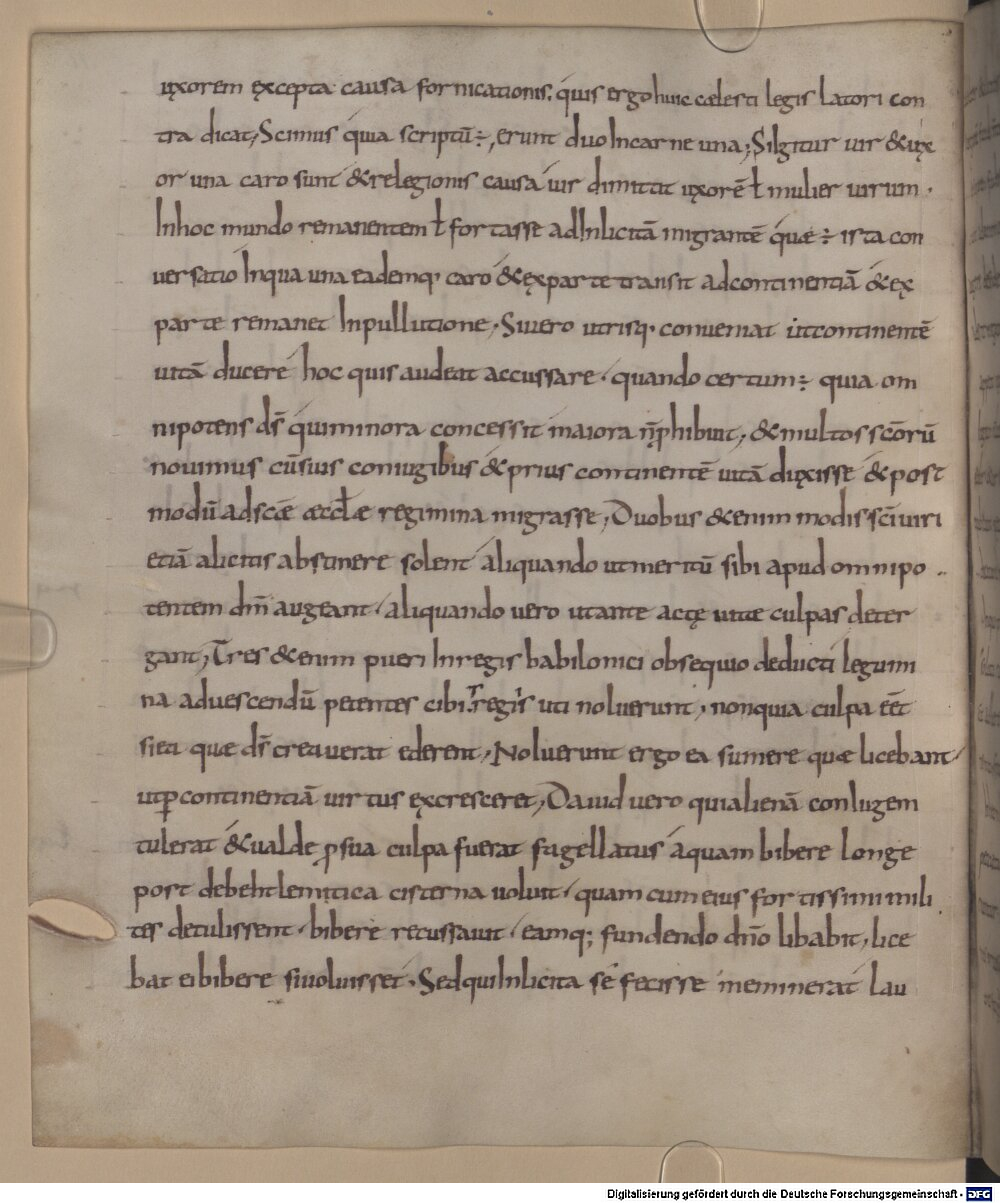 uxorem excepta causa fornicationis, quis ergo huic cęlesti legis latori con
tra dicat; Scimus quia scriptū ÷, erunt duo In carne una; Si Igitur uir & ux
or una caro sunt & relegionis causa uir dimittit uxorē ł mulier uirum.
In hoc mundo remanentem ł fortasse ad Inlicitā migrantē quæ ÷ ista con
uersatio In qua una eademq; caro & ex parte transit ad continentiā & ex
parte remanet In pullutione; Si uero utrisq; conueniat ut continentē
uitā ducere hoc quis audeat accussare. quando certum ÷ quia om
nipotens d̄s qui minora concessit maiora n̄ p̱hibuit; & multos scōrū
nouimus cū suis coniugibus & prius continentē uitā duxisse & post
modū ad scǣ æccłæ regimina migrasse; Duobus &enim modis sc̄i uiri
etiā a licitis abstinere solent aliquando ut meritū sibi apud omnipo
tentem dm̄ augeant. aliquando uero ut ante actę uitæ culpas deter
gant; Tres &enim pueri In regis babilonici obsequio deducti legumi
na ad uescendū petentes cibis regis uti noluerunt, non quia culpa eēt
si ea quæ d̄s creauerat ederent; Noluerunt ergo ea sumere quæ licebant
ut ꝑ continentiā uirtus excresceret; Dauid uero qui alienā coniugem
tulerat & ualde ꝓ sua culpa fuerat fagellatus aquam bibere longe
post debehtlemitica cisterna uoluit. quam cum eius fortissimi mili
tes detulissent. bibere recussauit. eamq; fundendo dn̄o libabit, lice
bat ei bibere si uoluisset. Sed qui Inlicita se fecisse meminerat lau
Digitalisierung gefördert durch die Deutsche Forschungsgemeinschaft - DFG